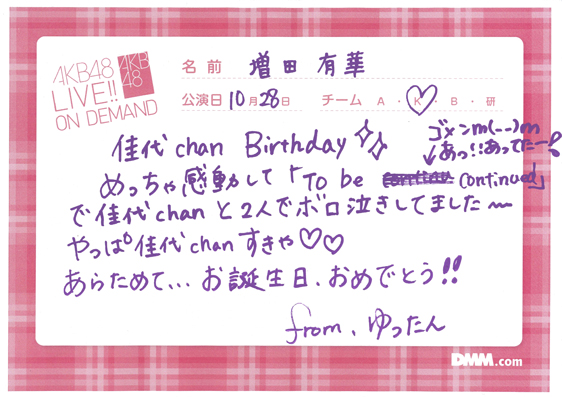 AKB48
LIVE!!
ON DEMAND
AKB
48
名前 増田 有華
公演日 10月28日 チーム A・K・B・研
佳代chan Birthday
ゴメンm(--)m
↓あっ!!あってたー!
めっちゃ感動して「To be continued」
で佳代chanと2人でボロ泣きしてました〜
やっぱ佳代chanすきや♡♡
あらためて... お誕生日、おめでとう!!
from. ゆったん
DMM.com